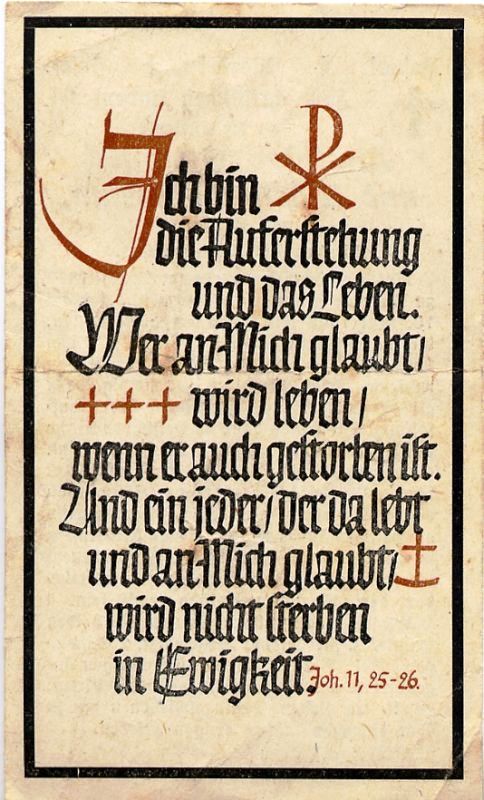 Ich bin
die Auferstehung
und das Leben.
Wer an Mich glaubt/
wird leben/
wenn er auch gestorben ist.
Und ein jeder/ der da lebt
und an Mich glaubt/
wird nicht sterben
in Ewigkeit. Joh. 11, 25-26.